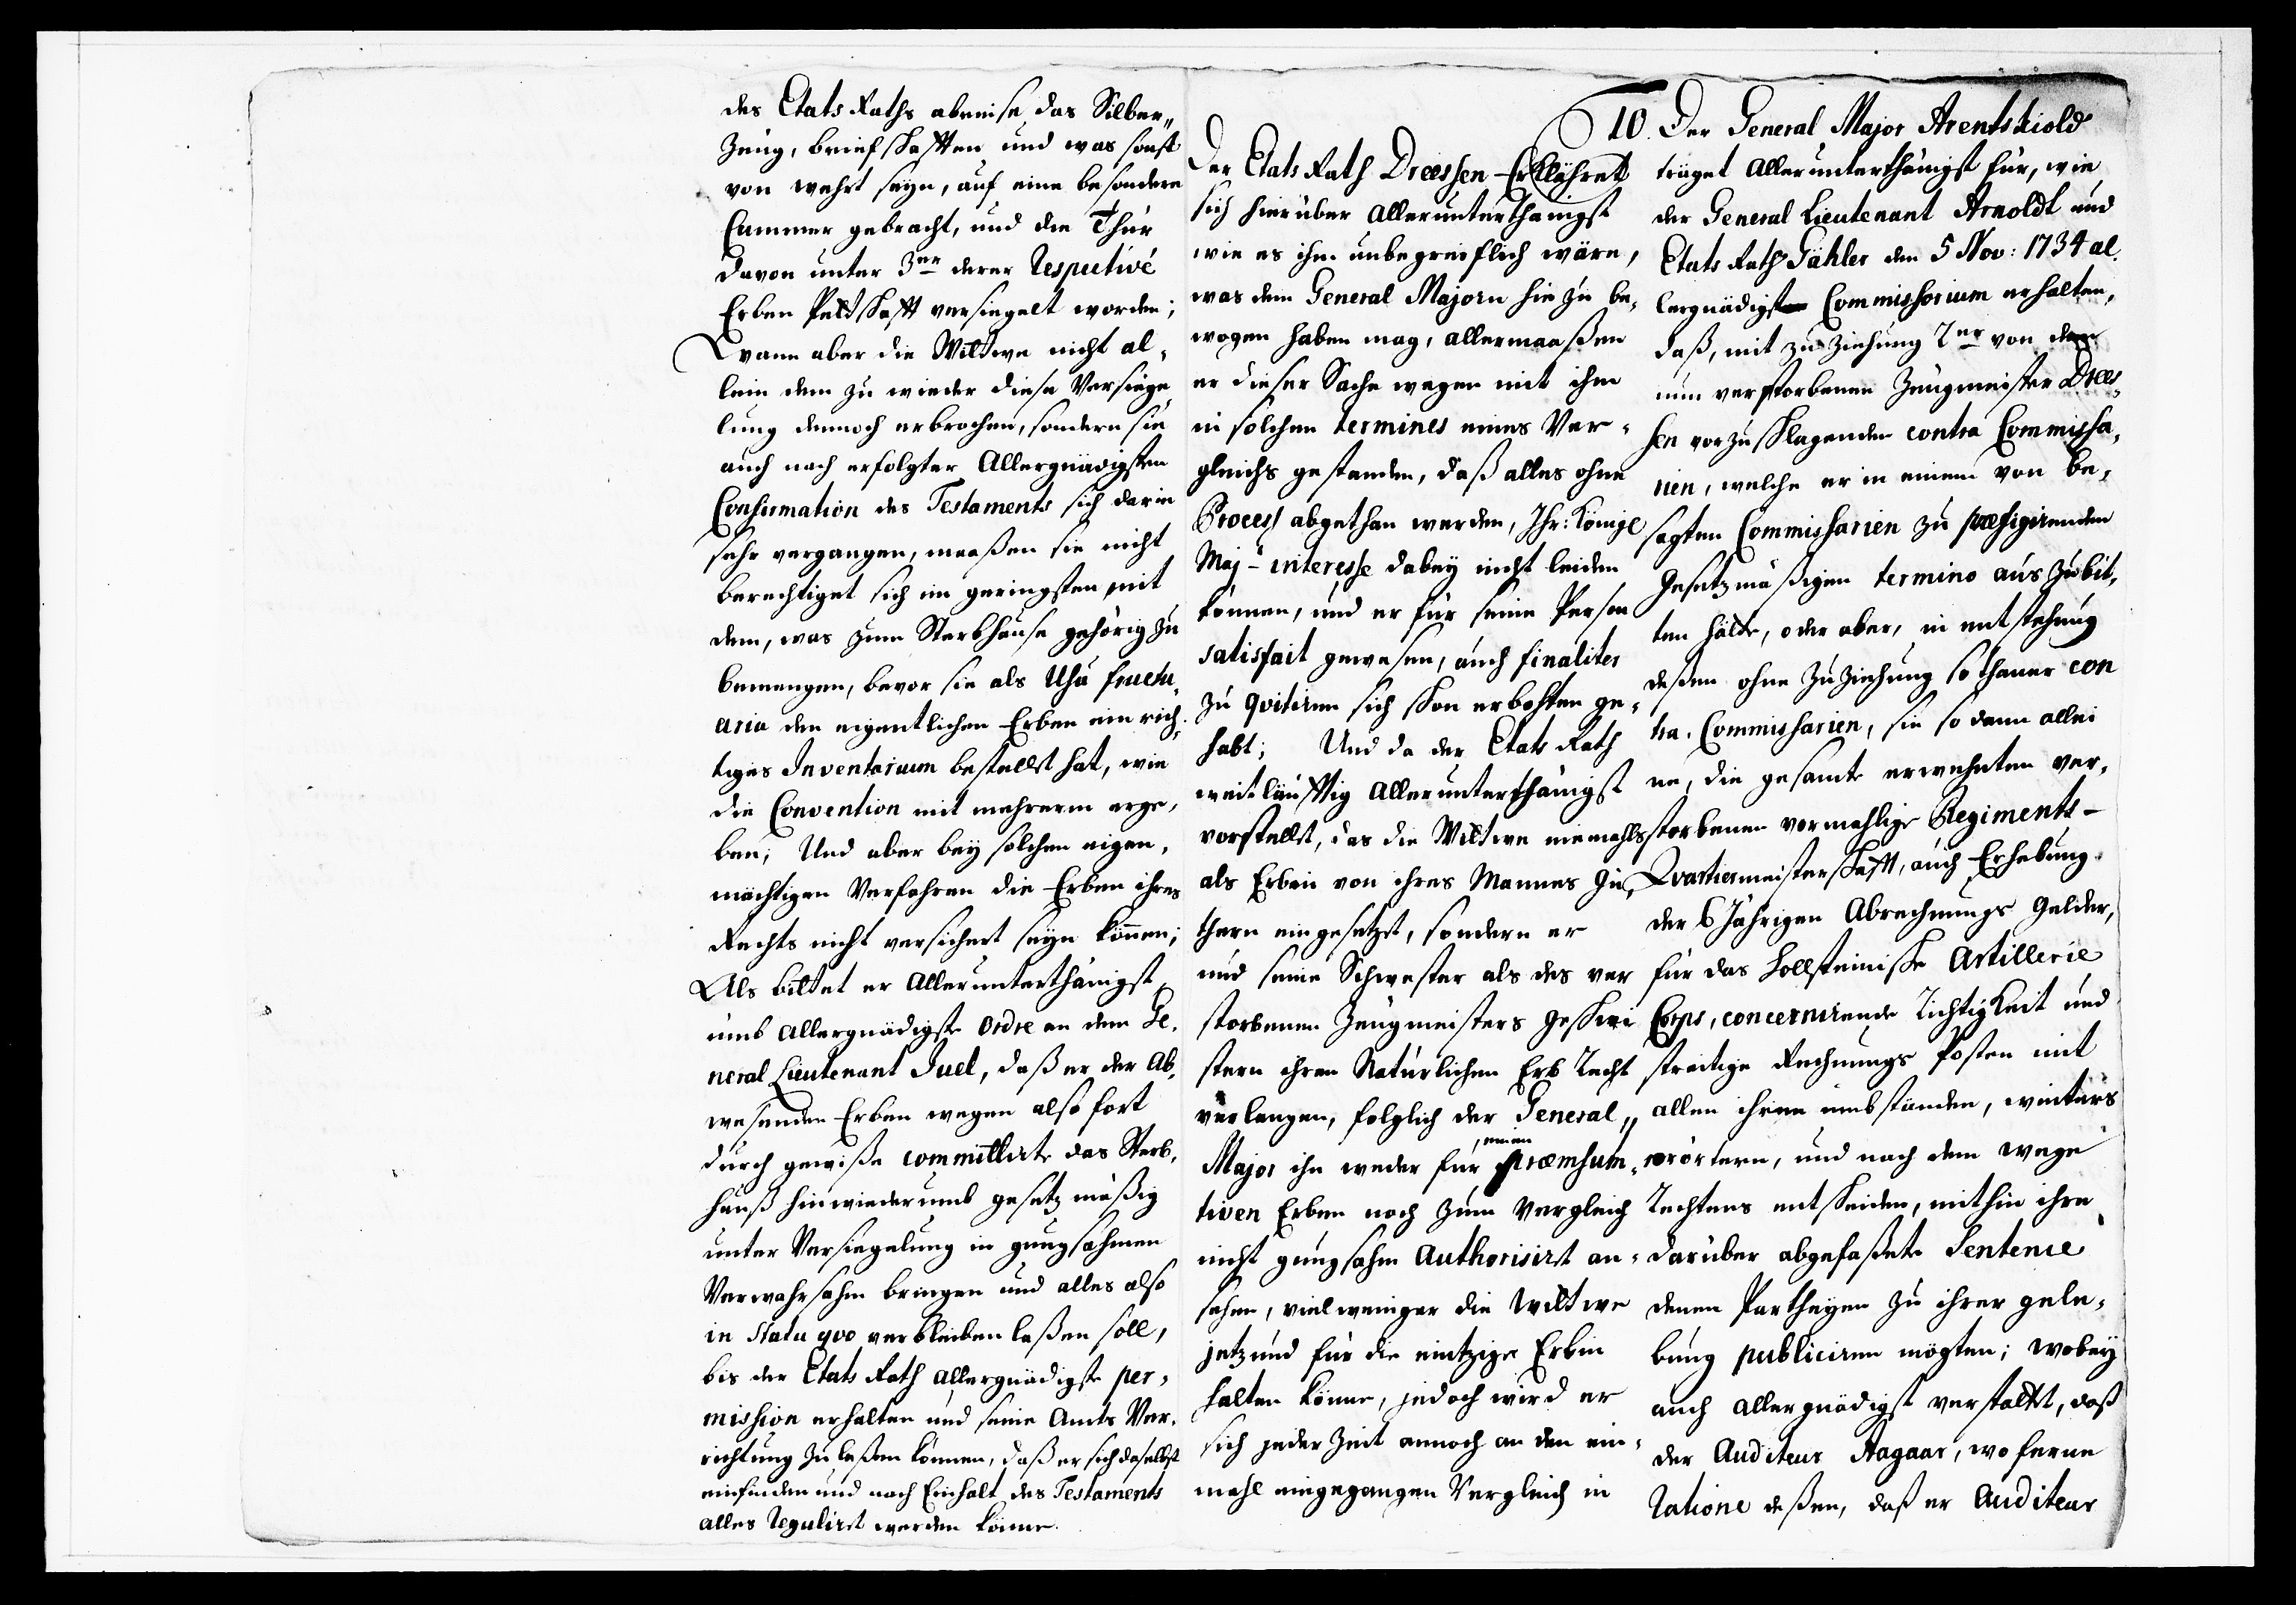 des Etats Raths abreise das Silber„
Zeug, briefschafften und was sonst
von wehrt seyn, auf eine besondere
Cammer gebracht, und die Thür
davon unter 3er derer Respective
Erben Pettschafft versiegelt worden;
Wann aber die Wittwe nicht al„
lein dem zu wieder diese Versiege„
lung dennoch erbrochen, sondern sie
auch nach erfolgter Allergnädigsten
Confirmation des Testaments sich darin
sehr vergangen, maaßen sie nicht
berechtiget sich im geringsten mit
dem, was zum Sterbhause gehörig zu
bemengen, bevor sie als Usu fructu„
aria den eigentlichen Erben ein rich„
tiges Inventarium bestellet hat, wie
die Convention mit mehrerm erge„
ben; Und aber bey solchen eigen„
mächtigen Verfahren die Erben ihres
Rechts nicht versichert seyn können;
Als bittet er Allerunterthänigst
umb allergnädigste Ordre an dem Ge„
neral Lieutenant Juel, daß er der Ab„
wesenden Erben wegen also fort
durch gewiße committirte das Sterb„
hauß hinwiederumb gesetz mäßig
unter Versiegelung in gnugsahmen
Verwahrsahm bringen und alles also
in Statu qvo verbleiben laßen soll,
bis der Etats Rath allergnädigste per„
mission erhalten und seine Amts Ver„
richtung zu laßen können, daß er sich daselbst
einfinden und nach Einhalt des Testaments
alles Regulirt werden könne.
Der Etats Rath Dreessen Erklähret
sich hierüber allerunterthänigst
wie es ihm unbegreiflich wäre,
was dem General Majorn hie zu be„
wogen haben mag, allermaaßen
er dieser Sache wegen mit ihm
in solchen termines eines Ver„
gleichs gestanden, daß alles ohne
Process abgethan werden, Ihr: Königl
Maj- interesse dabey nicht leiden
können, und er für seine Person
satisfait gewesen, auch finaliter
zu qvitiren sich schon erbohten ge„
habt; Und da der Etats Rath
weitläufftig Allerunterthänigst
vorstellet, das die Wittwe niemahls
als Erbin von ihres Mannes Gü„
thern eingesetzet, sondern er
und seine Schwester als des ver
storbenen Zeugmeisters Geschwi
stern ihren Natürlichen Erb Recht
verlangen, folglich der General„
Major ihn weder für einen præmsum„
tiven Erben noch zum Vergleich
nicht gnugsahm Authorisirt an„
sehen, vielweniger die Wittwe
jetzund für die eintzige Erbin
halten könne, jedoch wird er
sich jeder Zeit annoch an den ein„
mahl eingegangen Vergleich in
10. Der General Major Arentskiold
träget Allerunterthänigst für, wie
der General Lieutenant Arnoldt und
Etats Rath Gähler den 5 Nov: 1734 al„
lergnädigst Commissorium erhalten,
daß, mit zu Ziehung 2er von dem
nun verstorbenen Zeugmeister Drees„
sen vorzuschlagenden contra Commissa„
rien, welche er in einem von be„
sagten Commissarien zu præfigirenden
Gesetzmäßigen termino aus zu bit„
ten hätte, oder aber, in entstehung
deßen ohne Zuziehung sothaner con
tra. Commissarien, sie so dann allei
ne, die gesamte erwehnten ver„
storbenen vormahlige Regiments-
Qvartiermeisterschafft, auch Erhebung
der 6 Jährigen Abrechnungs Gelder,
für das Hollsteinische Artillerie
Corps, concernirende Richtigkeit und
streitige Rechnungs Posten mit
allen ihren umbständen, weiters
erörtern, und nach dem wege
Rechtens entscheiden, mithin ihre
darüber abgefaßete Sentence
denen Partheyen zu ihrer gele„
bung publiciren mögten; wobey
auch allergnädigst verstattet, daß
der Auditeur Aagaar, wo ferne
Ratione deßen, daß er Auditeur